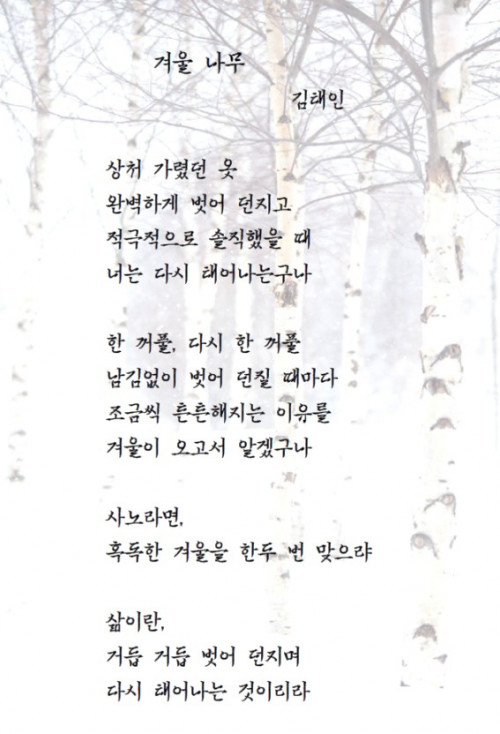 겨울 나무
김태인
상처 가렸던 옷
완벽하게 벗어 던지고
적극적으로 솔직했을 때
너는 다시 태어나는구나
한 꺼풀, 다시 한 꺼풀
남김없이 벗어 던질 때마다
조금씩 튼튼해지는 이유를
겨울이 오고서 알겠구나
사노라면,
혹독한 겨울을 한두 번 맞으랴
삶이란,
거듭 거듭 벗어 던지며
다시 태어나는 것이리라